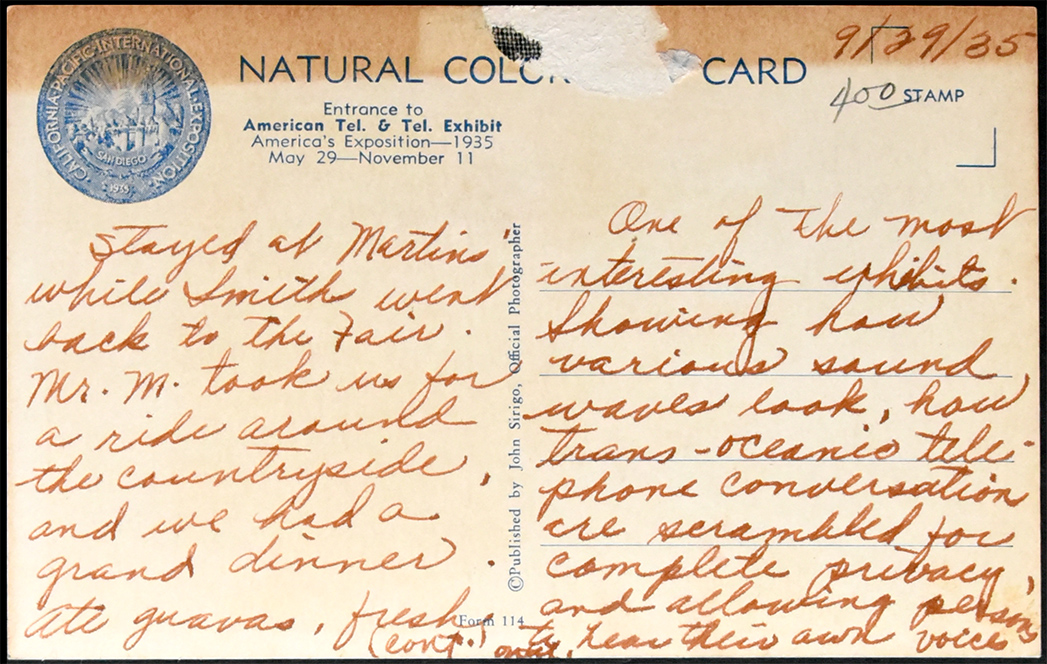 CALIFORNIA-PACIFIC INTERNATIONAL EXPOSITION
SAN DIEGO
1935
NATURAL COLOR CARD
Entrance to
American Tel. & Tel. Exhibit
America's Exposition—1935
May 29—November 11
9/29/35
400
STAMP
Stayed at Martins'
while Smiths went
back to the Fair.
Mr. M. took us for
a ride around
the countryside,
and we had a
grand dinner.
Ate guavas, fresh
(cont.)
©Published by John Sirigo, Official Photographer
Form 114
One of the most
interesting exhibits.
Showing how
various sound
waves look, how
trans-oceanic tele-
phone conversation
are scrambled for
complete privacy,
and allowing persons
to hear their own voices